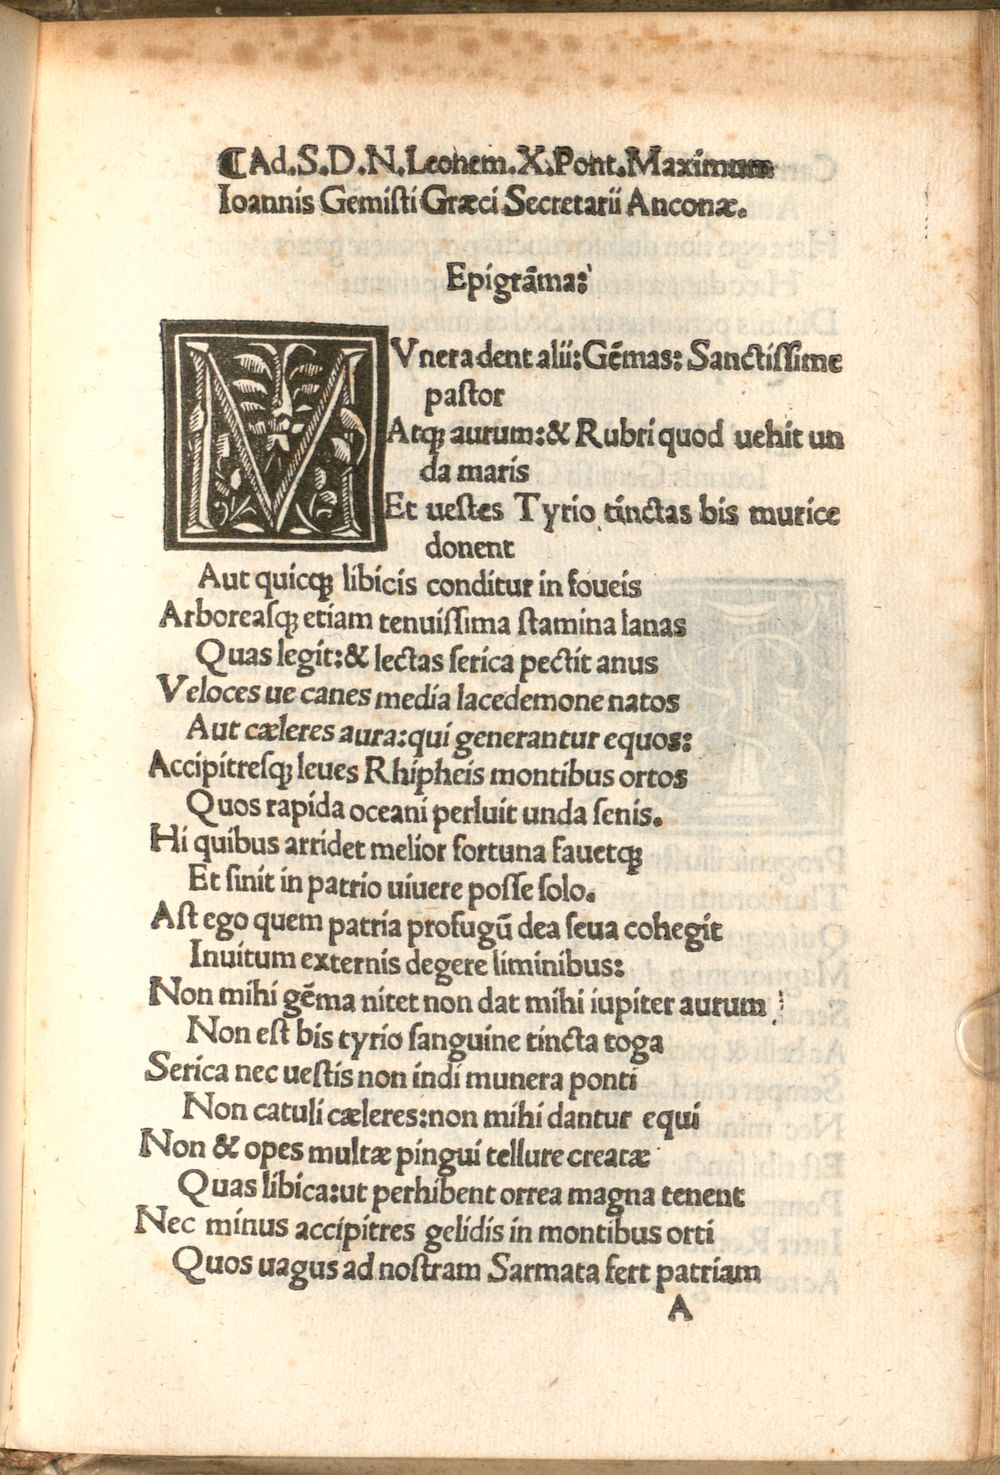 ¶Ad.S.D.N.Leonem.X.Pont.Maximum
Ioannis Gemisti Græci Secretarii Anconæ.
Epigrāma:
MVnera dent alii:Gēmas: Sanctissime
pastor
Atq; aurum:& Rubri quod uehit un
da maris
Et uestes Tyrio tinctas bis murice
donent
Aut quicq; libicis conditur in foueis
Arboreasq; etiam tenuissima stamina lanas
Quas legit:& lectas serica pectit anus
Veloces ue canes media lacedemone natos
Aut cæleres aura:qui generantur equos:
Accipitresq; leues Rhipheis montibus ortos
Quos rapida oceani perluit unda senis.
Hi quibus arridet melior fortuna fauetq;
Et sinit in patrio uiuere posse solo.
Ast ego quem patria profugū dea seua cohegit
Inuitum externis degere liminibus:
Non mihi gēma nitet non dat mihi iupiter aurum
Non est bis tyrio sanguine tincta toga
Serica nec uestis non indi munera ponti
Non catuli cæleres:non mihi dantur equi
Non & opes multæ pingui tellure creatæ
Quas libica:ut perhibent orrea magna tenent
Nec minus accipitres gelidis in montibus orti
Quos uagus ad nostram Sarmata fert patriam
A